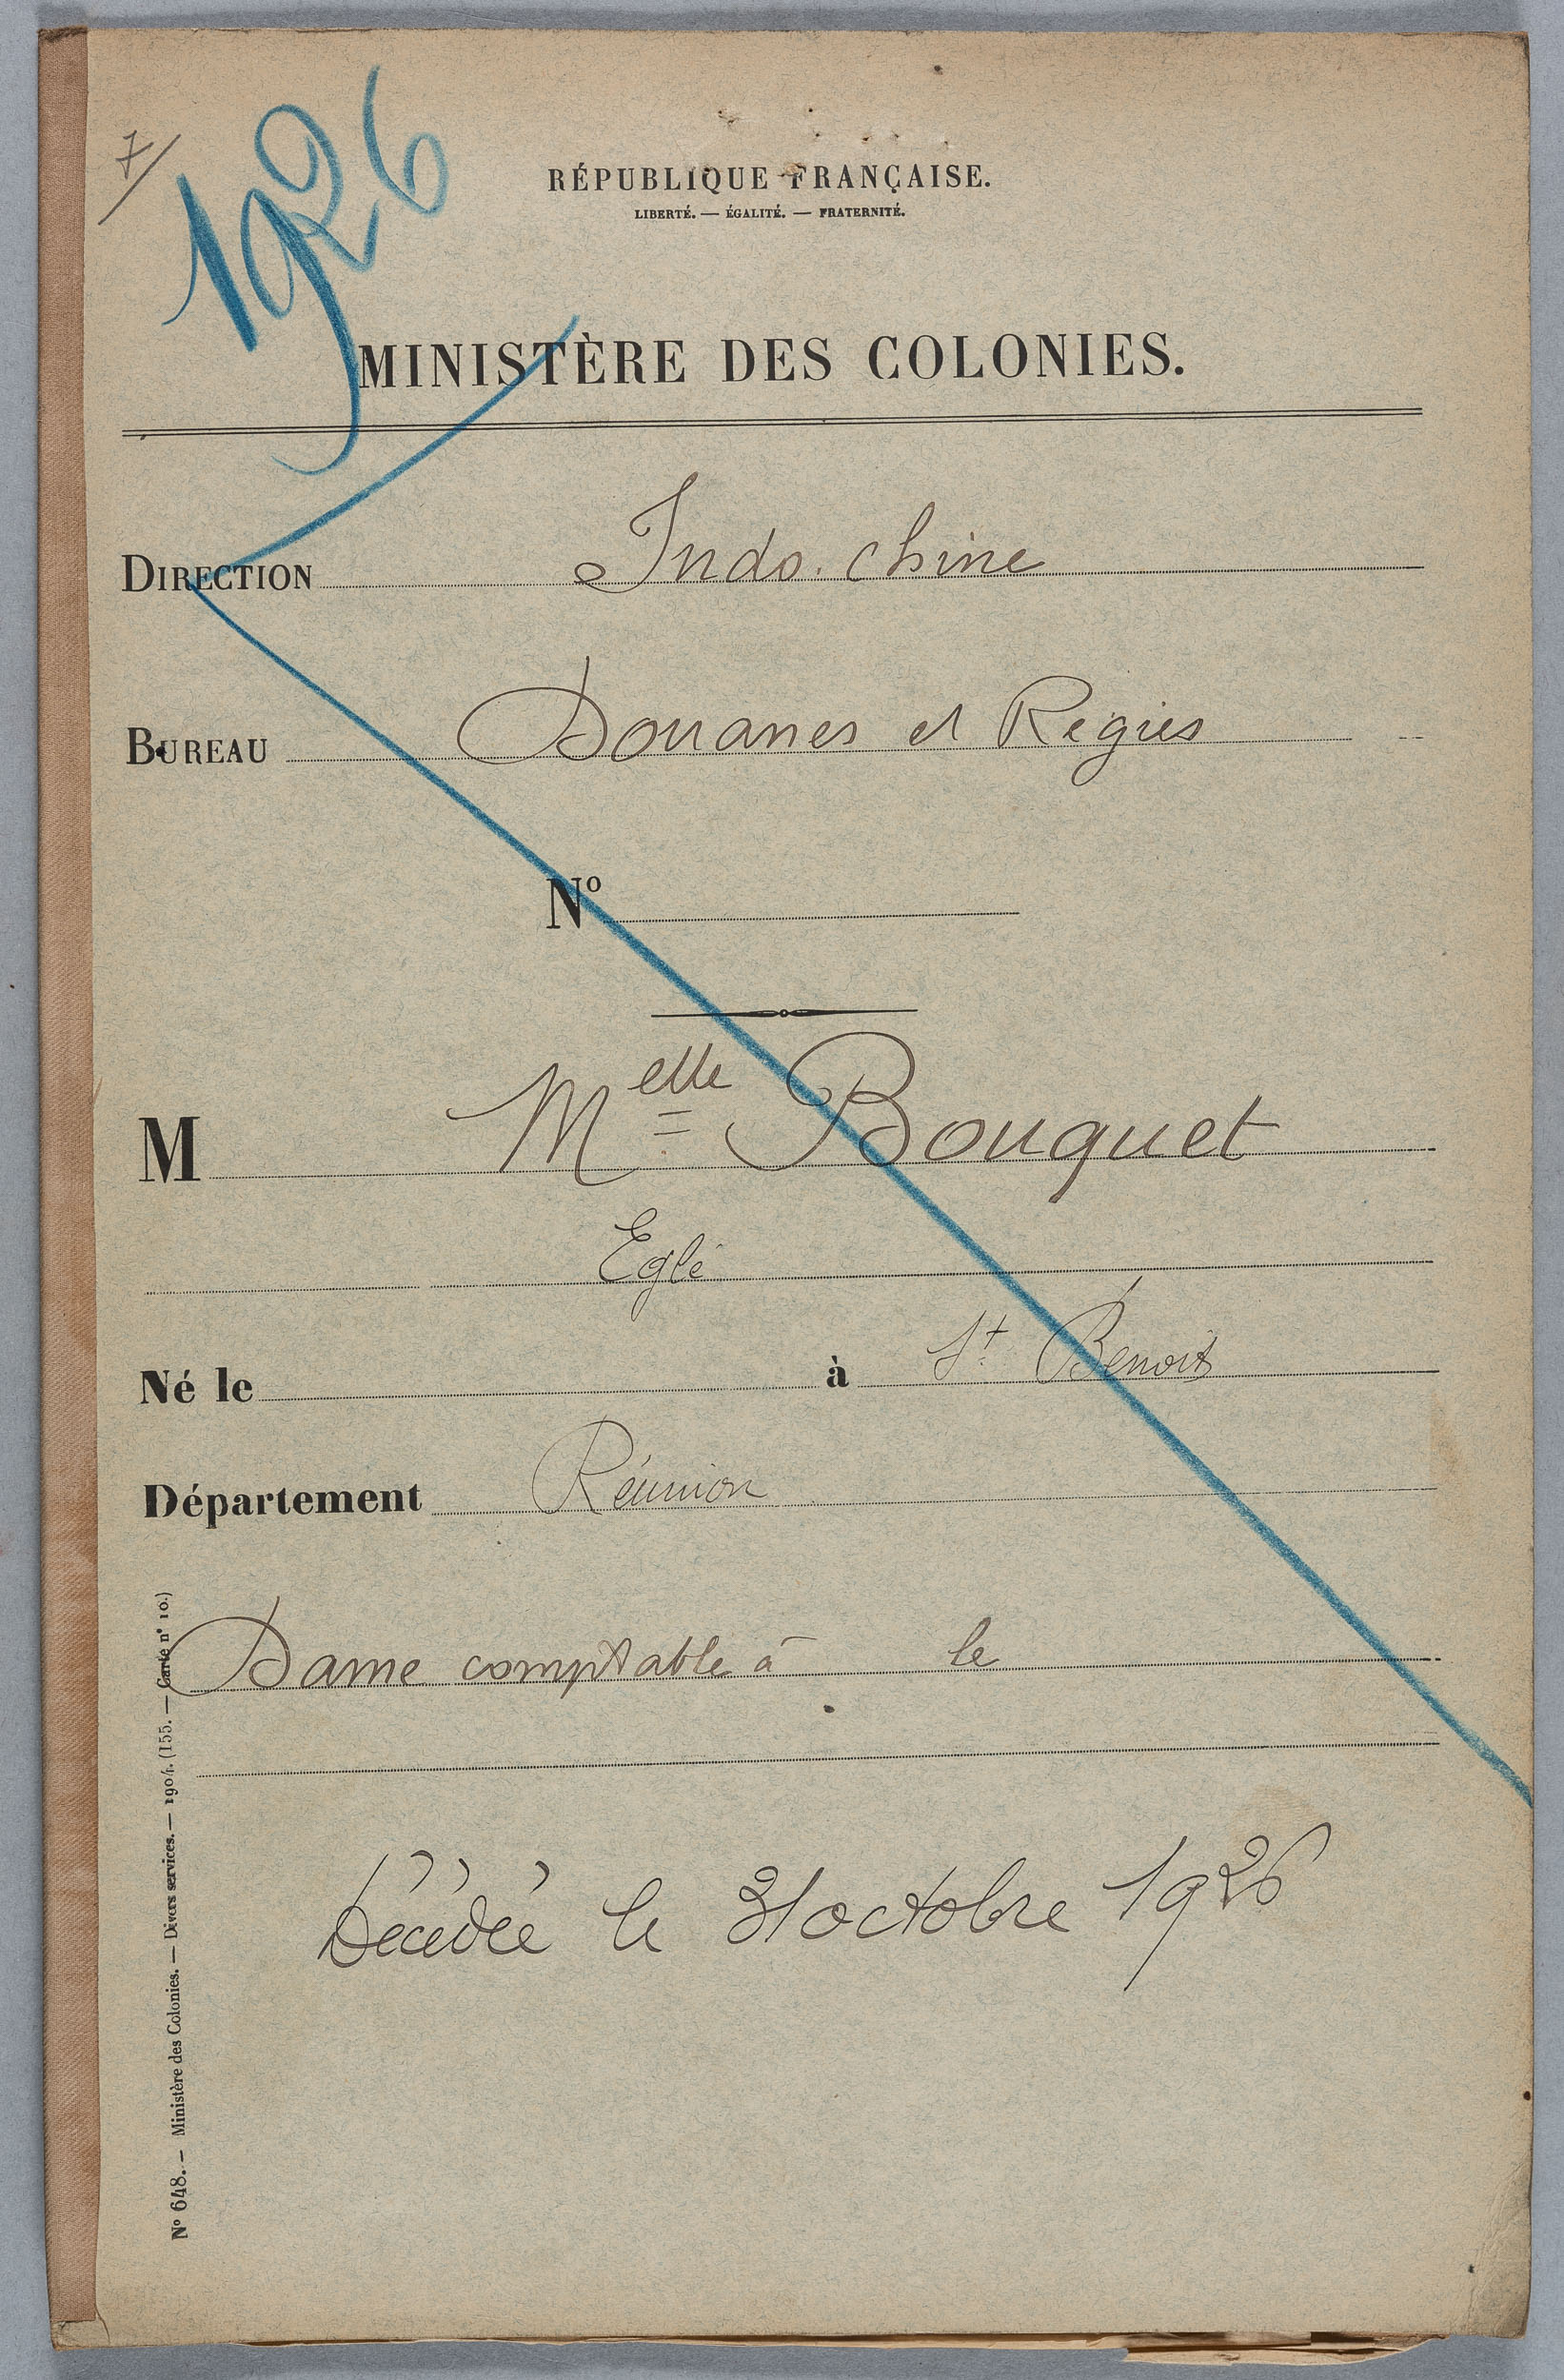 7/
1926
RÉPUBLIQUE FRANÇAISE.
LIBERTÉ. — ÉGALITÉ. — FRATERNITÉ.
MINISTÈRE DES COLONIES.
DIRECTION Indo. chine
BUREAU Douanes et Régies
N°
M Melle Bouquet
Eglé
Né le à St. Benoit
Département Réunion
Dame comptable à le
Décédée le 31 octobre 1926
N° 648. — Ministère des Colonies. — Divers services. — 1904. (155. — Carte n° 10.)